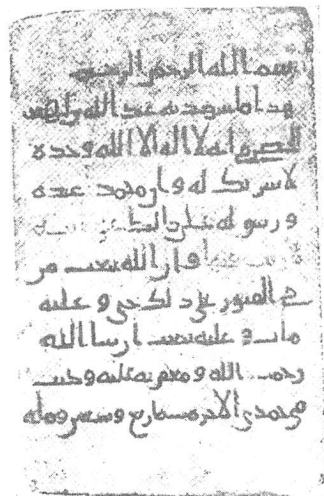 بسم الله الرحمن الرحيم
هذا ما يشهد به عبد الله بن لهيعة
الحضرمي انه لا اله الا الله وحده
لا شريك له وان محمد عبده
ورسوله صلى الله عليه
وان الله يبعث من
في القبور على ذلك حي وعليه
مات وعليه يبعث ان شا الله
رحمت الله ومغفرته عليه وكتب
في جمدى الاخر سنت اربع وسبعين ومئه